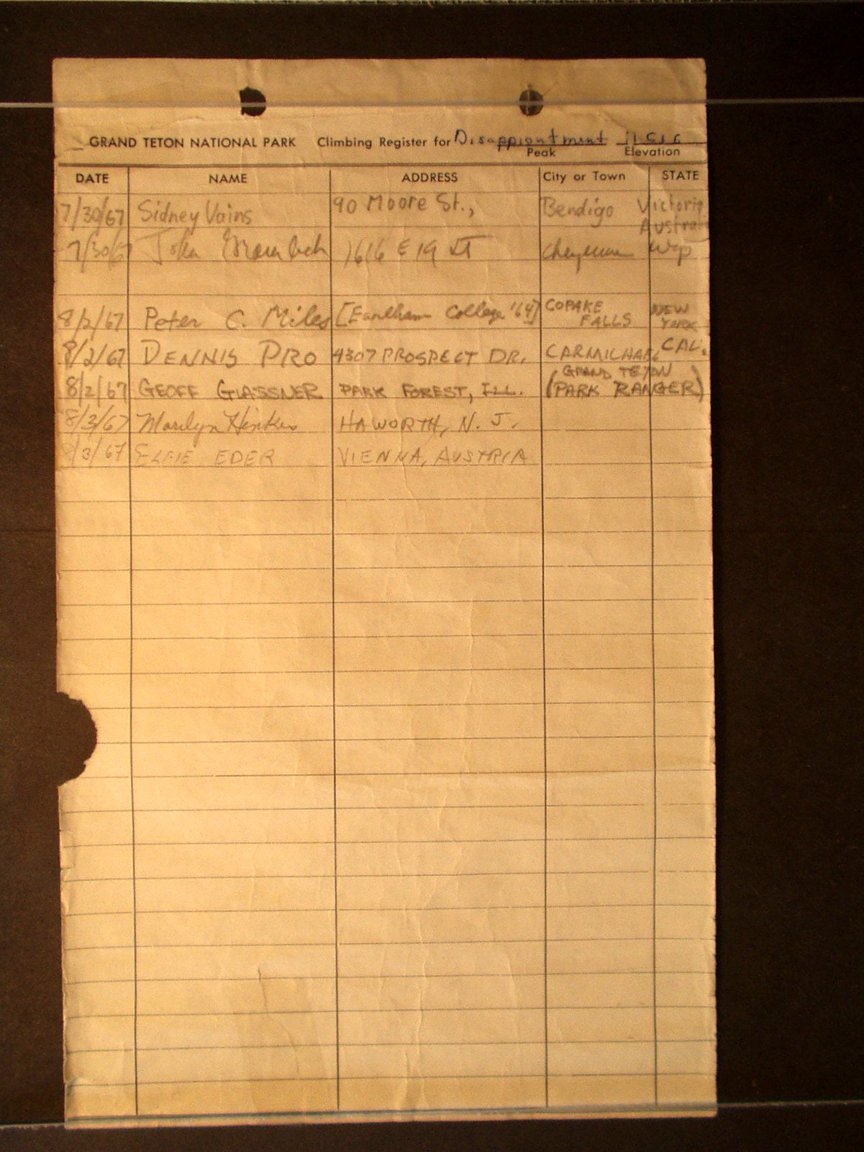 GRAND TETON NATIONAL PARK Climbing Register for Disappiontment 11616
Peak Elevation
DATE NAME ADDRESS City or Town STATE
7/30/67 Sidney Vains 90 Moore St., Bendigo Victoria
Austral
7/30/67 John 1616 E 19 St Cheyenne Wyo
8/2/67 Peter C. Miles [Earlham College '64] COPAKE FALLS NEW YORK
8/2/67 DENNIS PRO 4307 PROSPECT DR. CARMICHAEL CAL.
8/2/67 GEOFF GLASSNER PARK FOREST, ILL. (GRAND TETON PARK RANGER)
8/3/67 Marilyn HAWORTH, N. J.
8/3/67 ELFIE EDER VIENNA, AUSTRIA